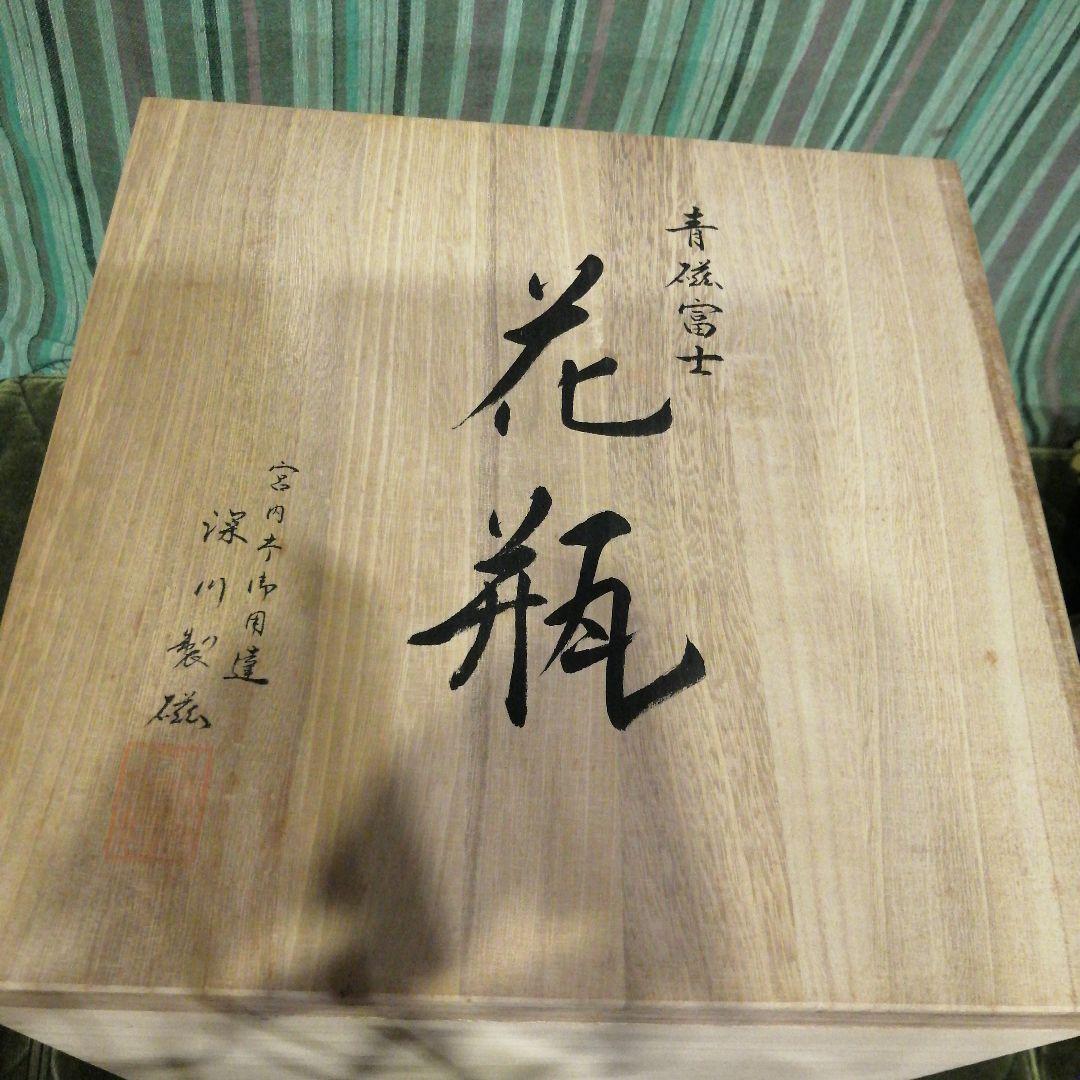 青磁富士
花瓶
宮内庁御用達
深川製磁